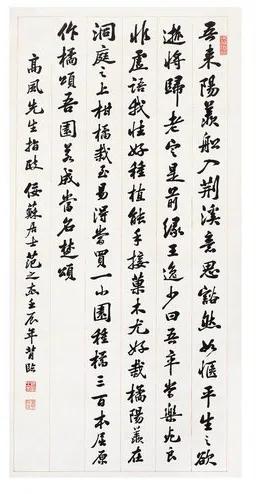 吾来陽羨船入荆溪意思豁然如惬平生之欲
逝将歸老定是前緣王逸少曰吾卒當樂死良
非虛語我性好種植能手接菓木尤好栽橘陽羨在
洞庭之上柑橘栽至易得當買一小園種橘三百本屈原
作橘頌吾園若成當名楚頌
高風先生指政 佞蘇居士范之杰壬辰年背臨